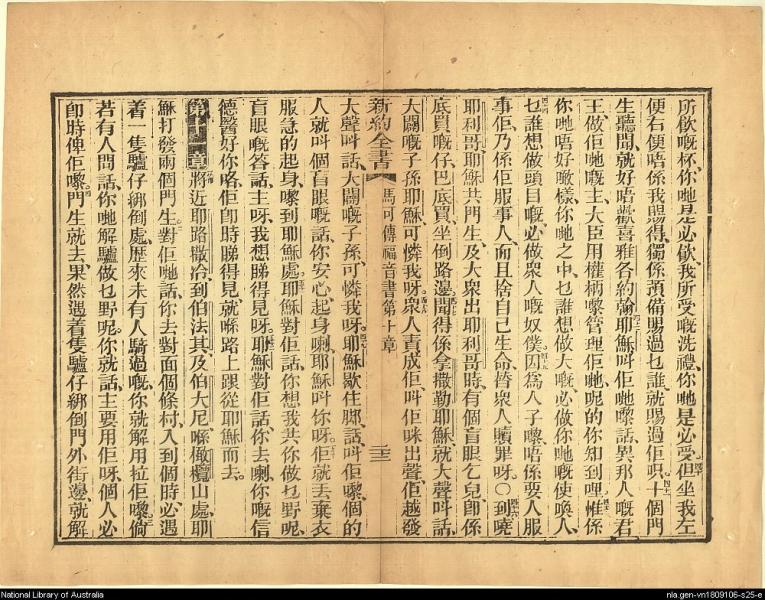 所飲嘅杯你哋是必飲我所受嘅洗禮你哋是必受但坐我左
便右便唔係我賜得獨係預備賜過乜誰就賜過佢呮十個門
生聽聞就好唔歡喜雅各約翰耶穌叫佢哋嚟話異邦人嘅君
王做佢哋嘅主大臣用權柄嚟管理佢哋呢的你知到哩惟係
你哋唔好噉樣你哋之中乜誰想做大嘅必做你哋嘅使喚人
乜誰想做頭目嘅必做衆人嘅奴僕因爲人子嚟唔係要人服
事佢乃係佢服事人而且捨自己生命替衆人贖罪呀○到嘵
耶利哥耶穌共門生及大衆出耶利哥時有個盲眼乞兒卽係
底買嘅仔巴底買坐倒路邊聞得係拿撒勒耶穌就大聲叫話
大闢嘅子孫耶穌可憐我呀衆人責成佢叫佢咪出聲佢越發
新約全書 馬可傳福音書第十章 二三
大聲叫話大闢嘅子孫可憐我呀耶穌歇住脚話叫佢嚟個的
人就叫個盲眼嘅話你安心起身喇耶穌叫你呀佢就丟棄衣
服急的起身嚟到耶穌處耶穌對佢話你想我共你做乜野呢
盲眼嘅答話主呀我想睇得見呀耶穌對佢話你去喇你嘅信
德醫好你咯佢卽時睇得見就喺路上跟從耶穌而去
將近耶路撒冷到伯法其及伯大尼喺橄欖山處耶
穌打發兩個門生對佢哋話你去對面個條村入到個時必遇
着一隻驢仔綁倒處歷來未有人騎過嘅你就解用拉佢嚟倘
若有人問話你哋解驢做乜野呢你就話主要用佢呀個人必
卽時俾佢嚟門生就去果然遇着隻驢仔綁倒門外街邊就解
National Library of Australia
nla.gen-vn1809106-s25-e